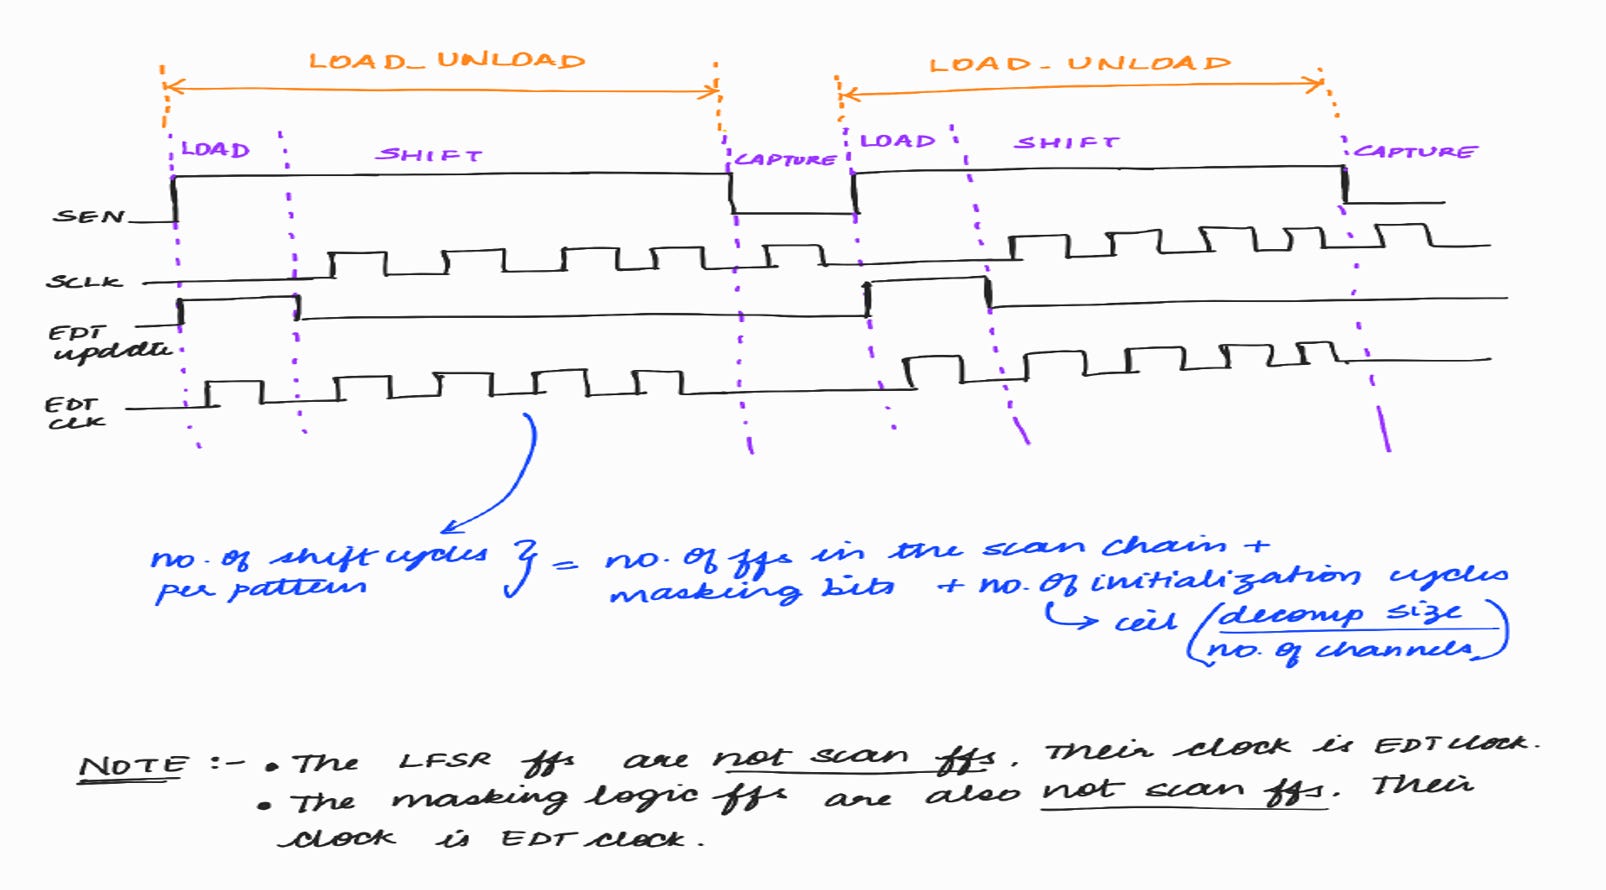 LOAD_UNLOAD
LOAD-UNLOAD
LOAD
SHIFT
CAPTURE
LOAD
SHIFT
CAPTURE
SEN
SCLK
EDT
update
EDT
CLK
no. of shift cycles } = no. of ffs in the scan chain +
per pattern masking bits + no. of initialization cycles
↳ ceil (decomp size
no. of channels)
NOTE :- • The LFSR ffs are not scan ffs. Their clock is EDT clock.
• The masking logic ffs are also not scan ffs. Their
clock is EDT clock.